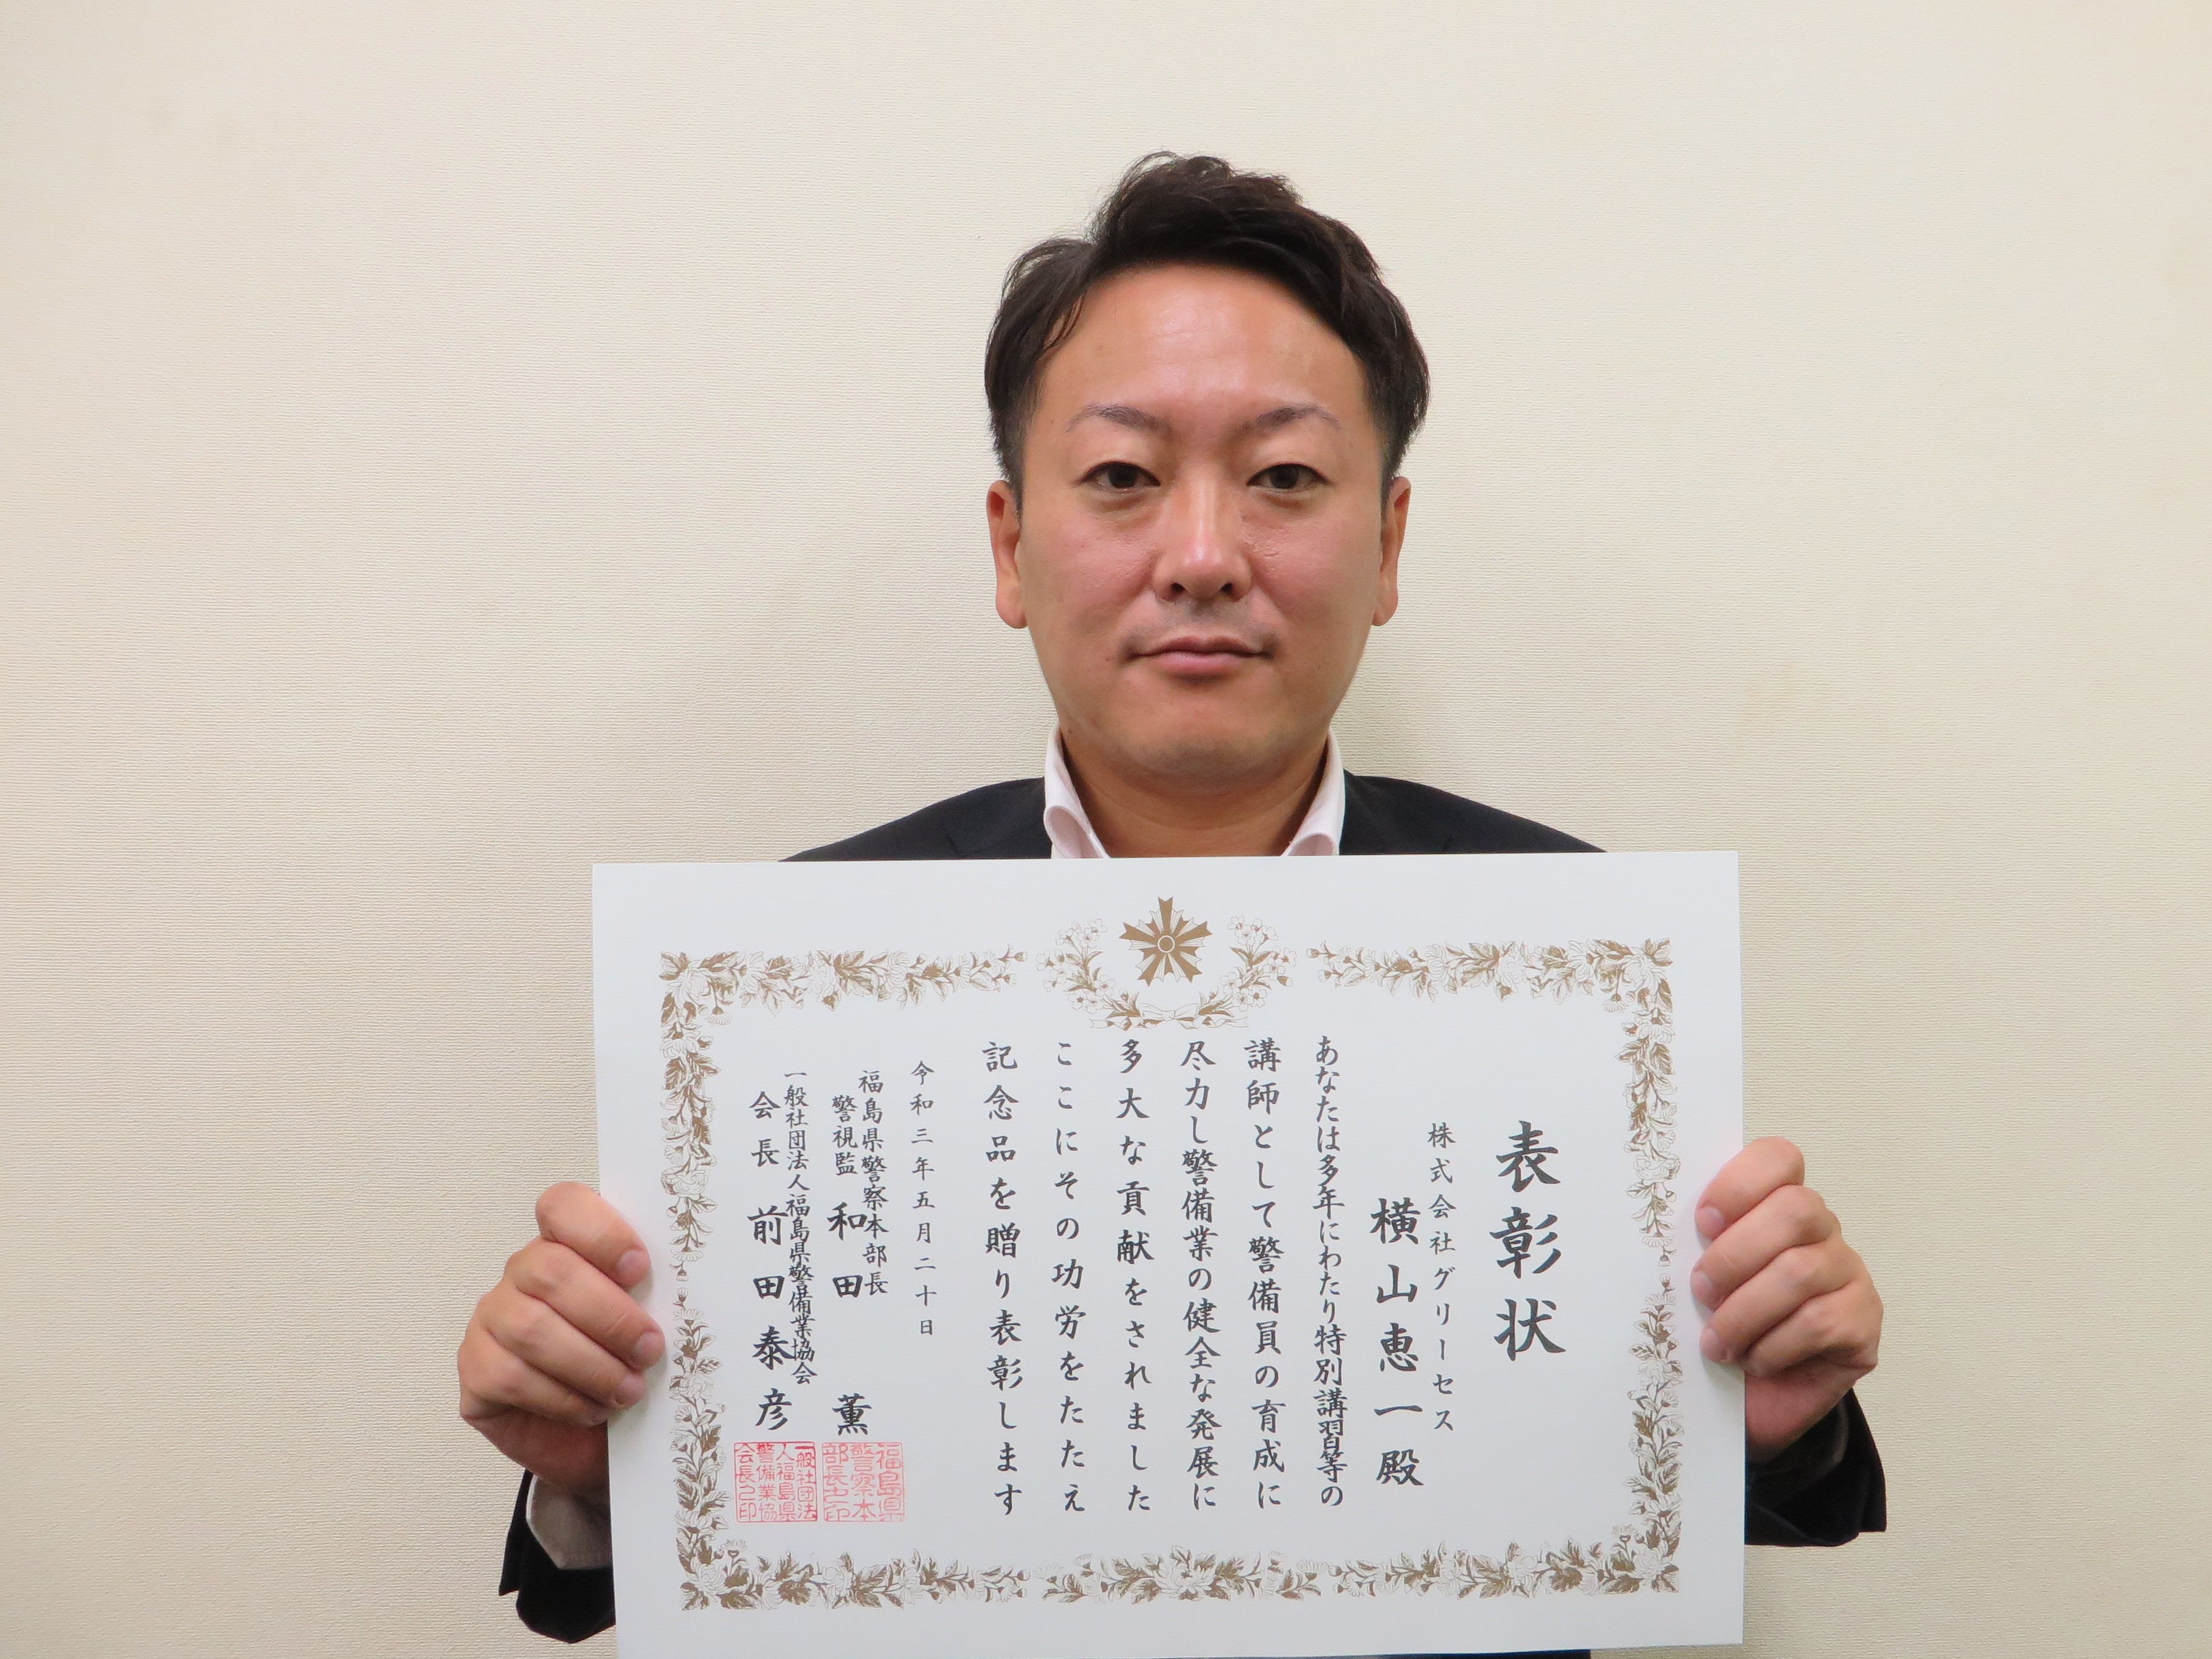 表彰状
株式会社グリーセス
横山恵一殿
あなたは多年にわたり特別講習等の
講師として警備員の育成に
尽力し警備業の健全な発展に
多大な貢献をされました
ここにその功労をたたえ
記念品を贈り表彰します
令和三年五月二十日
福島県警察本部長
警視監 和田 薫
一般社団法人福島県警備業協会
会長 前田泰彦
福島県
警察本
部長之印
一般社団法
人福島県
警備業協
会長之印